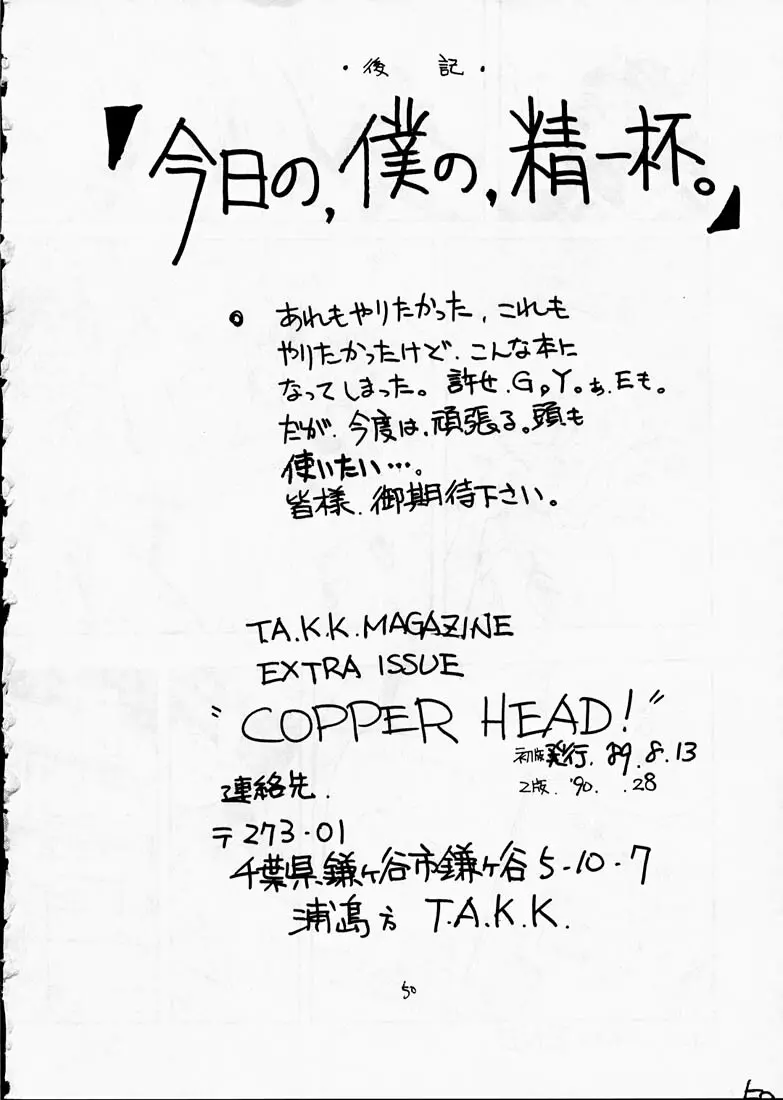 ・後 記・
『今日の,僕の,精一杯。』
。あれもやりたかった、これも
やりたかったけど、こんな本に
なってしまった。許せ、G。Y。あ、Eも。
だが、今度は、頑張る。頭も
使いたい…。
皆様、御期待下さい。
T.A.K.K.MAGAZINE
EXTRA ISSUE
"COPPER HEAD!"
初版発行. 89.8.13
2版. '90. .28
連絡先.
〒273-01
千葉県鎌ヶ谷市鎌ヶ谷5-10-7
浦島方 T.A.K.K.
50
50